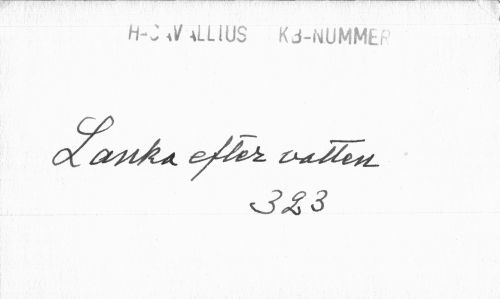 H-CAVALLIUS KB-NUMMER
Lanka efter vatten
323